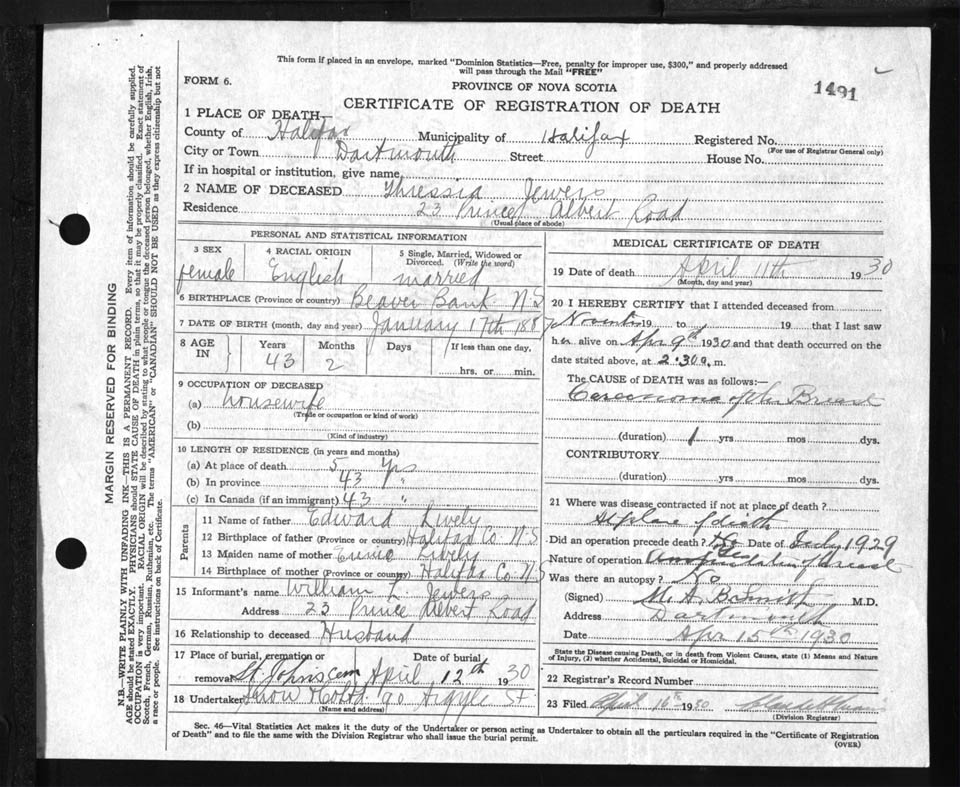 This form if placed in an envelope, marked "Dominion Statistics—Free, penalty for improper use, $300," and properly addressed
will pass through the Mail "FREE"
FORM 6.
PROVINCE OF NOVA SCOTIA
1491
CERTIFICATE OF REGISTRATION OF DEATH
1 PLACE OF DEATH
County of Halifax Municipality of Halifax Registered No.
(For use of Registrar General only)
City or Town Dartmouth Street House No.
If in hospital or institution, give name
2 NAME OF DECEASED Thressia Jewers
Residence 23 Prince Albert Road
(Usual place of abode)
PERSONAL AND STATISTICAL INFORMATION
3 SEX 4 RACIAL ORIGIN 5 Single, Married, Widowed or
Divorced. (Write the word)
female English married
6 BIRTHPLACE (Province or country) Beaver Bank N.S
7 DATE OF BIRTH (month, day and year) January 17th 1887
8 AGE IN Years Months Days If less than one day,
43 2 hrs. or min.
9 OCCUPATION OF DECEASED
(a) housewife
(Trade or occupation or kind of work)
(b)
(Kind of industry)
10 LENGTH OF RESIDENCE (in years and months)
(a) At place of death 5 Yrs
(b) In province 43 "
(c) In Canada (if an immigrant) 43 "
Parents
11 Name of father Edward Lively
12 Birthplace of father (Province or country) Halifax Co. N.S
13 Maiden name of mother Lively
14 Birthplace of mother (Province or country) Halifax Co N.S
15 Informant's name William L Jewers
Address 23 Prince Albert Road
16 Relationship to deceased Husband
17 Place of burial, cremation or Date of burial
removal St. Johns cem April 12th 1930
18 Undertaker Snow & Co Ltd. 90 Argyle St
(Name and address)
MEDICAL CERTIFICATE OF DEATH
19 Date of death April 11th 1930
(Month, day and year)
20 I HEREBY CERTIFY that I attended deceased from
19 to 19 that I last saw
her alive on Apr 9th 1930 and that death occurred on the
date stated above, at 2.30 a. m.
The CAUSE of DEATH was as follows:—
Carcinoma of the Breast
(duration) 1 yrs mos dys.
CONTRIBUTORY
(duration) yrs mos dys.
21 Where was disease contracted if not at place of death?
At place of death
Did an operation precede death? Yes Date of July 1929
Nature of operation Amputation of breast
Was there an autopsy? No
(Signed) M. A. B. Smith M.D.
Address Dartmouth
Date Apr 15th 1930
State the Disease causing Death, or in death from Violent Causes, state (1) Means and Nature
of Injury, (2) whether Accidental, Suicidal or Homicidal.
22 Registrar's Record Number
23 Filed April 16th 1930
(Division Registrar)
Sec. 46—Vital Statistics Act makes it the duty of the Undertaker or person acting as Undertaker to obtain all the particulars required in the "Certificate of Registration
of Death" and to file the same with the Division Registrar who shall issue the burial permit.
(OVER)
MARGIN RESERVED FOR BINDING
N.B.—WRITE PLAINLY WITH UNFADING INK—THIS IS A PERMANENT RECORD. Every item of information should be carefully supplied.
AGE should be stated EXACTLY. PHYSICIANS should STATE CAUSE OF DEATH in plain terms, so that it may be properly classified. Exact statement of
OCCUPATION is very important. RACIAL ORIGIN will be described by stating to what people or tongue the deceased person belonged, whether English, Irish,
Scotch, French, German, Russian, Ruthenian, etc. The terms "AMERICAN" or "CANADIAN" SHOULD NOT BE USED as they express citizenship but not
a race or people. See instructions on back of Certificate.